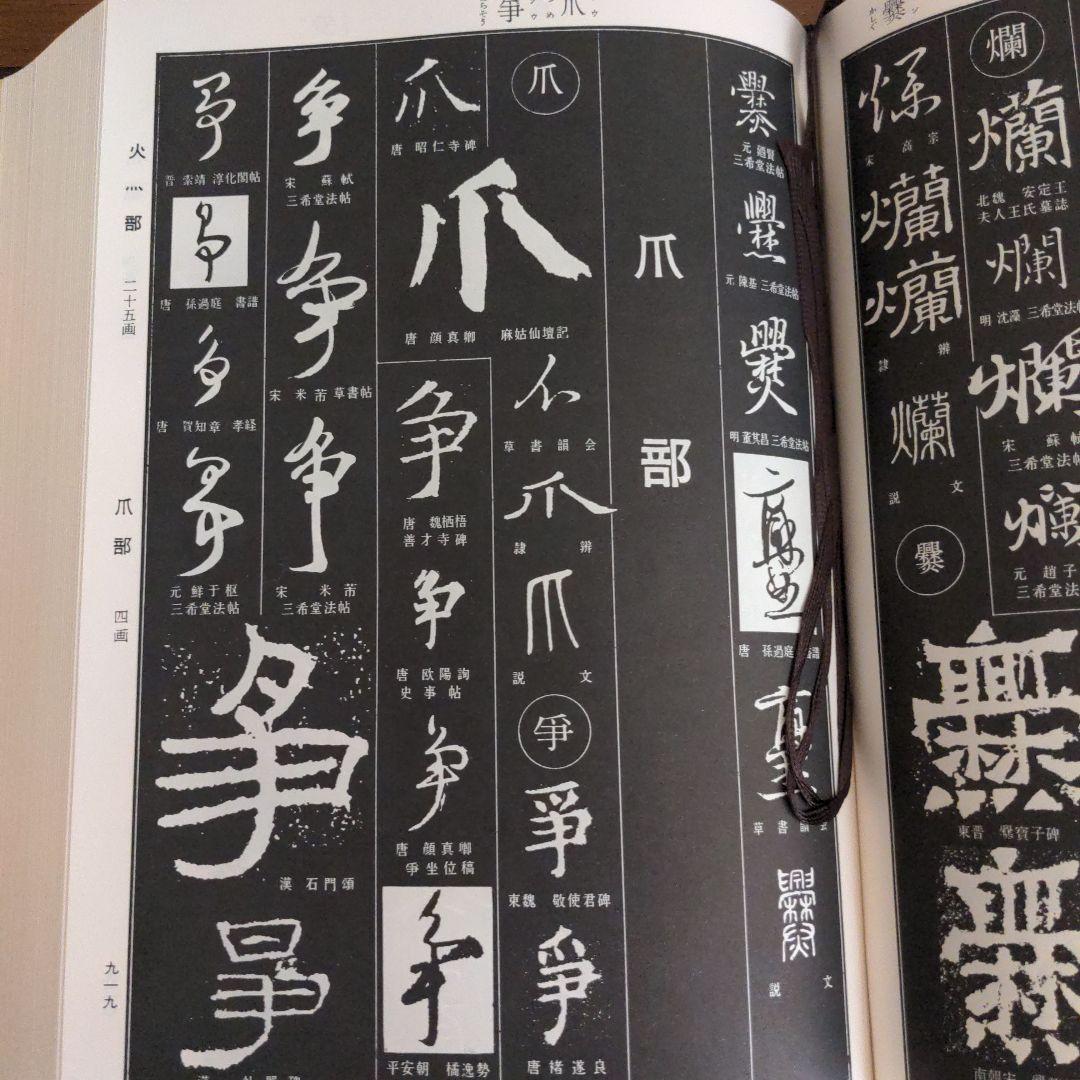 爛
爛
北魏 安定王
夫人王氏墓誌
爛
明 沈藻 三希堂法帖
爛
宋 蘇軾
三希堂法帖
爛
元 趙子
三希堂法
宋 高宗
爛
爛
隷 辨
爛
説 文
爨
東晋 爨寶子碑
爨
元 廼賢
三希堂法帖
爨
元 陳基 三希堂法帖
爨
明 董其昌 三希堂法帖
爨
唐 孫過庭 書譜
爨
草書韻会
爨
説 文
爪部
爪
爪
唐 昭仁寺碑
爪
唐 顔真卿 麻姑仙壇記
爪
草書韻会
爪
隷 辨
爪
説 文
爭
爭
東魏 敬使君碑
爭
唐 褚遂良
争
唐 魏栖梧
善才寺碑
争
唐 欧陽詢
史事帖
争
唐 顔真卿
争坐位稿
争
平安朝 橘逸勢
争
宋 蘇軾
三希堂法帖
争
宋 米芾 草書帖
争
宋 米芾
三希堂法帖
争
晋 索靖 淳化閣帖
争
唐 孫過庭 書譜
争
唐 賀知章 孝経
争
元 鮮于枢
三希堂法帖
争
漢 石門頌
爭
火灬部 二十五画
爪部 四画
九一九